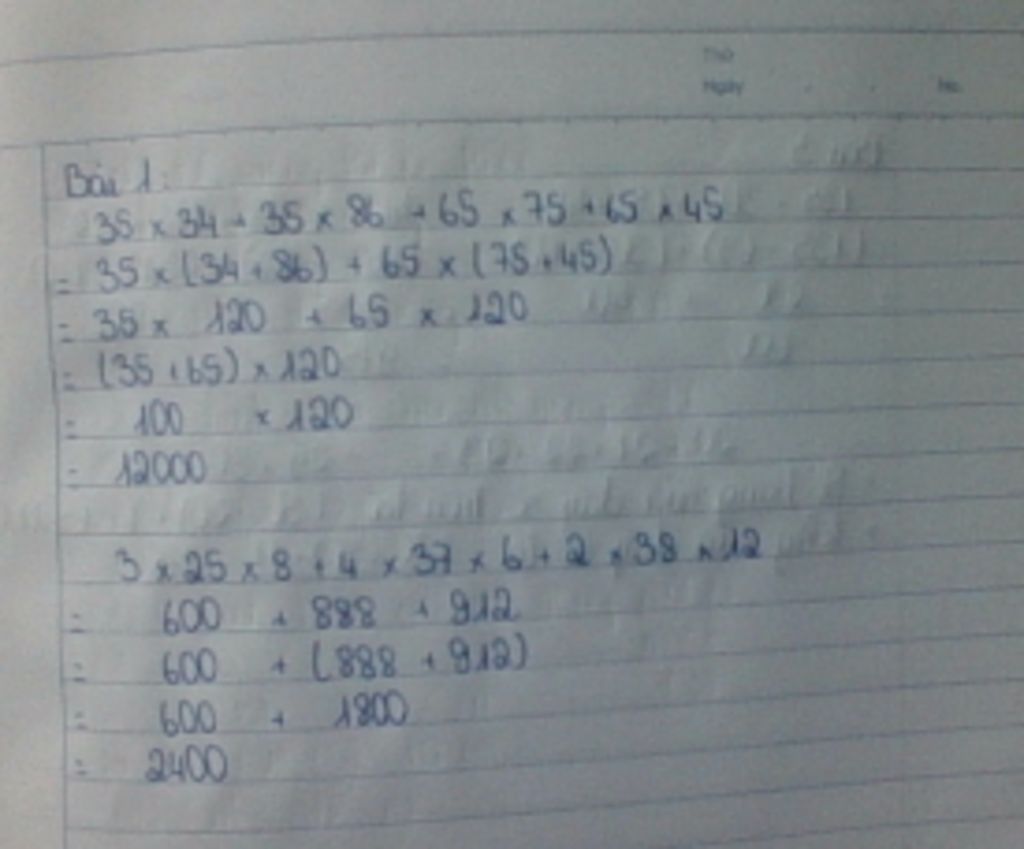 Thứ
Ngày No.
Bài 1:
35 x 34 + 35 x 86 + 65 x 75 + 65 x 45
= 35 x (34 + 86) + 65 x (75 + 45)
= 35 x 120 + 65 x 120
= (35 + 65) x 120
= 100 x 120
= 12000
3 x 25 x 8 + 4 x 37 x 6 + 2 x 38 x 12
= 600 + 888 + 912
= 600 + (888 + 912)
= 600 + 1800
= 2400